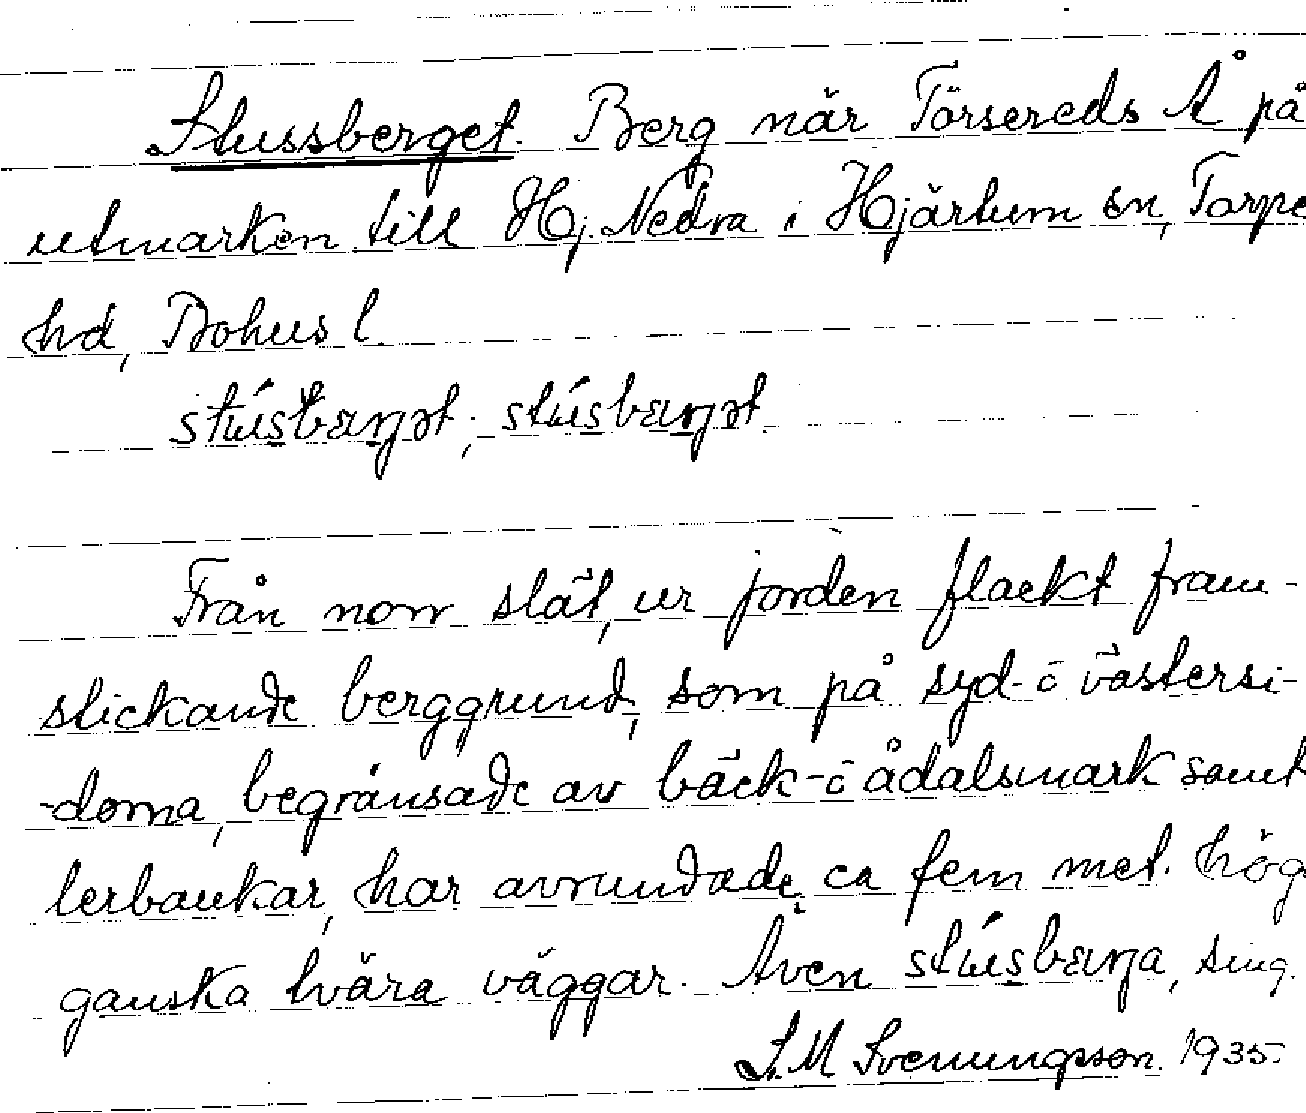 Stussberget. Berg när Törsereds Å på
utmarken till Hj. Nedra i Hjärtum sn, Torpe
hd, Bohusl.
Från norr slät, ur jorden flackt fram-
stickande berggrund, som på syd- o västersi-
-dorna, begränsade av bäck- o ådalsmark samt
lerbankar, har avrundade, ca fem met. hög
ganska tvära väggar. Även sing.
S.M Svenungsson. 1935.